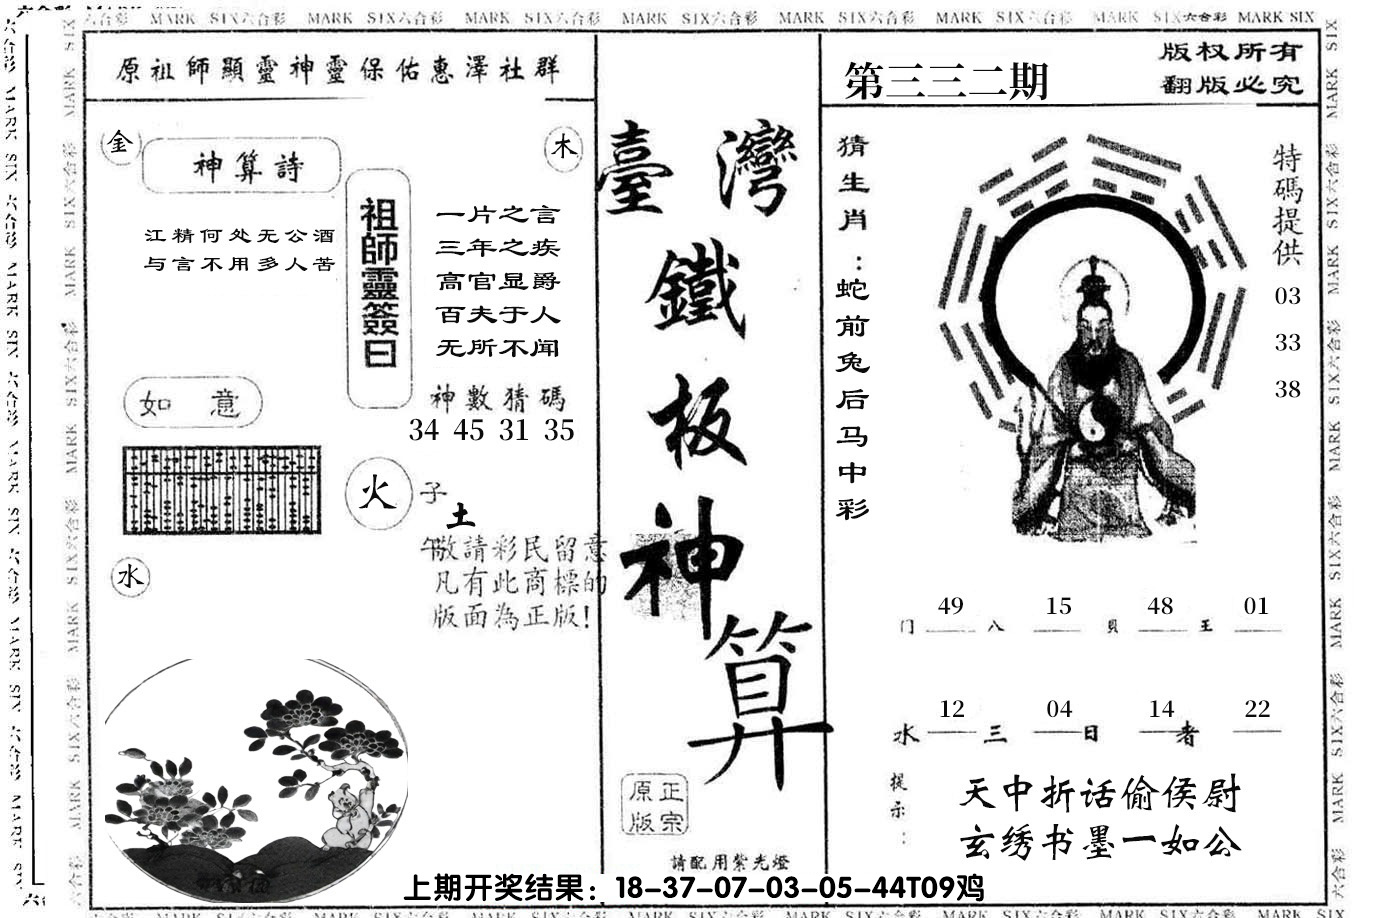 MARK SIX六合彩 MARK SIX六合彩 MARK SIX六合彩 MARK SIX六合彩 MARK SIX六合彩 MARK SIX六合彩 MARK SIX六合彩 MARK SIX
原祖師顯靈神靈保佑惠澤社群
金
神算詩
木
江精何处无公酒
与言不用多人苦
祖師靈簽曰
一片之言
三年之疾
高官显爵
百夫于人
无所不闻
神數猜碼
34 45 31 35
如意
火
子
土
午
水
敬請彩民留意
凡有此商標的
版面為正版!
臺灣
鐵
板
神
算
正宗
原版
請配用紫光燈
第三三二期
版权所有
翻版必究
猜生肖:蛇前兔后马中彩
特碼提供
03
33
38
门 49 八 15 貝 48 王 01
水 12 三 04 日 14 者 22
提示:
天中折话偷侯尉
玄绣书墨一如公
上期开奖结果：18-37-07-03-05-44T09鸡